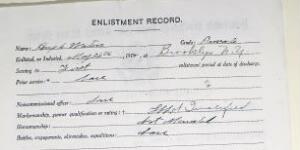 ENLISTMENT RECORD.
Name: Hugh Grade: Private
Enlisted, or Inducted, 191 , at Brooklyn N.Y.
Serving in First enlistment period at date of discharge.
Prior service: * None
Noncommissioned officer: None
Marksmanship, gunner qualification or rating: † Not Qualified
Horsemanship: Not Mounted
Battles, engagements, skirmishes, expeditions: None